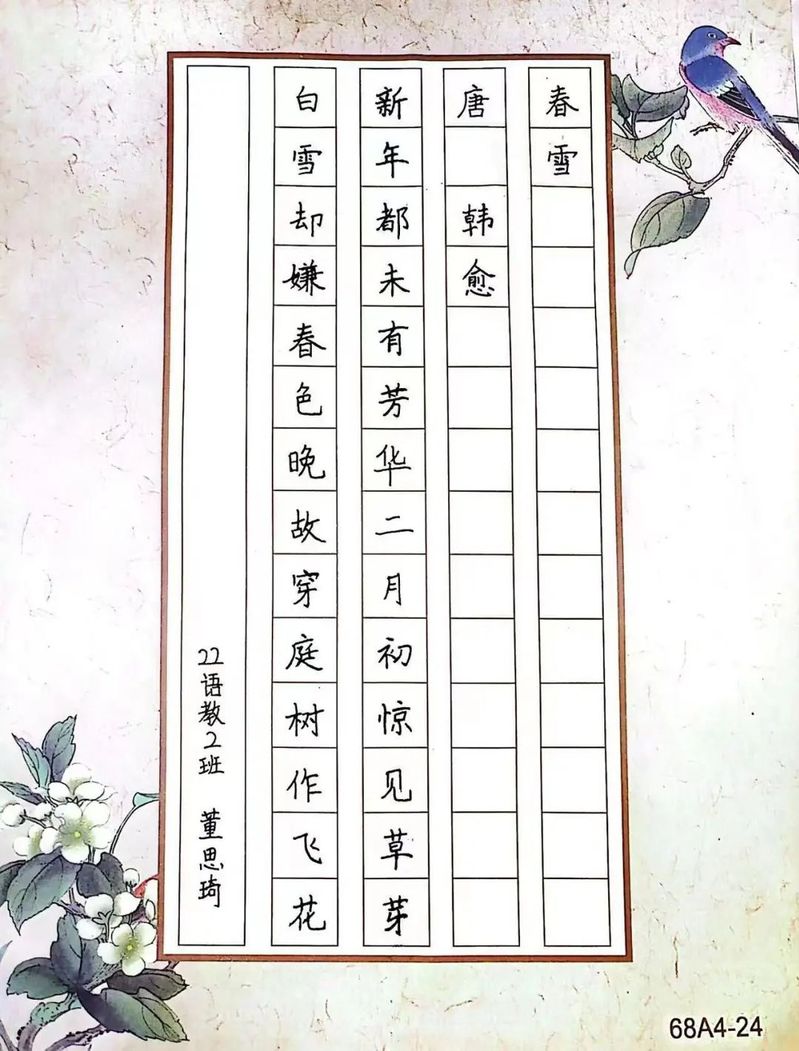 春雪
唐 韩愈
新年都未有芳华二月初惊见草芽
白雪却嫌春色晚故穿庭树作飞花
22语教2班 董思琦
68A4-24